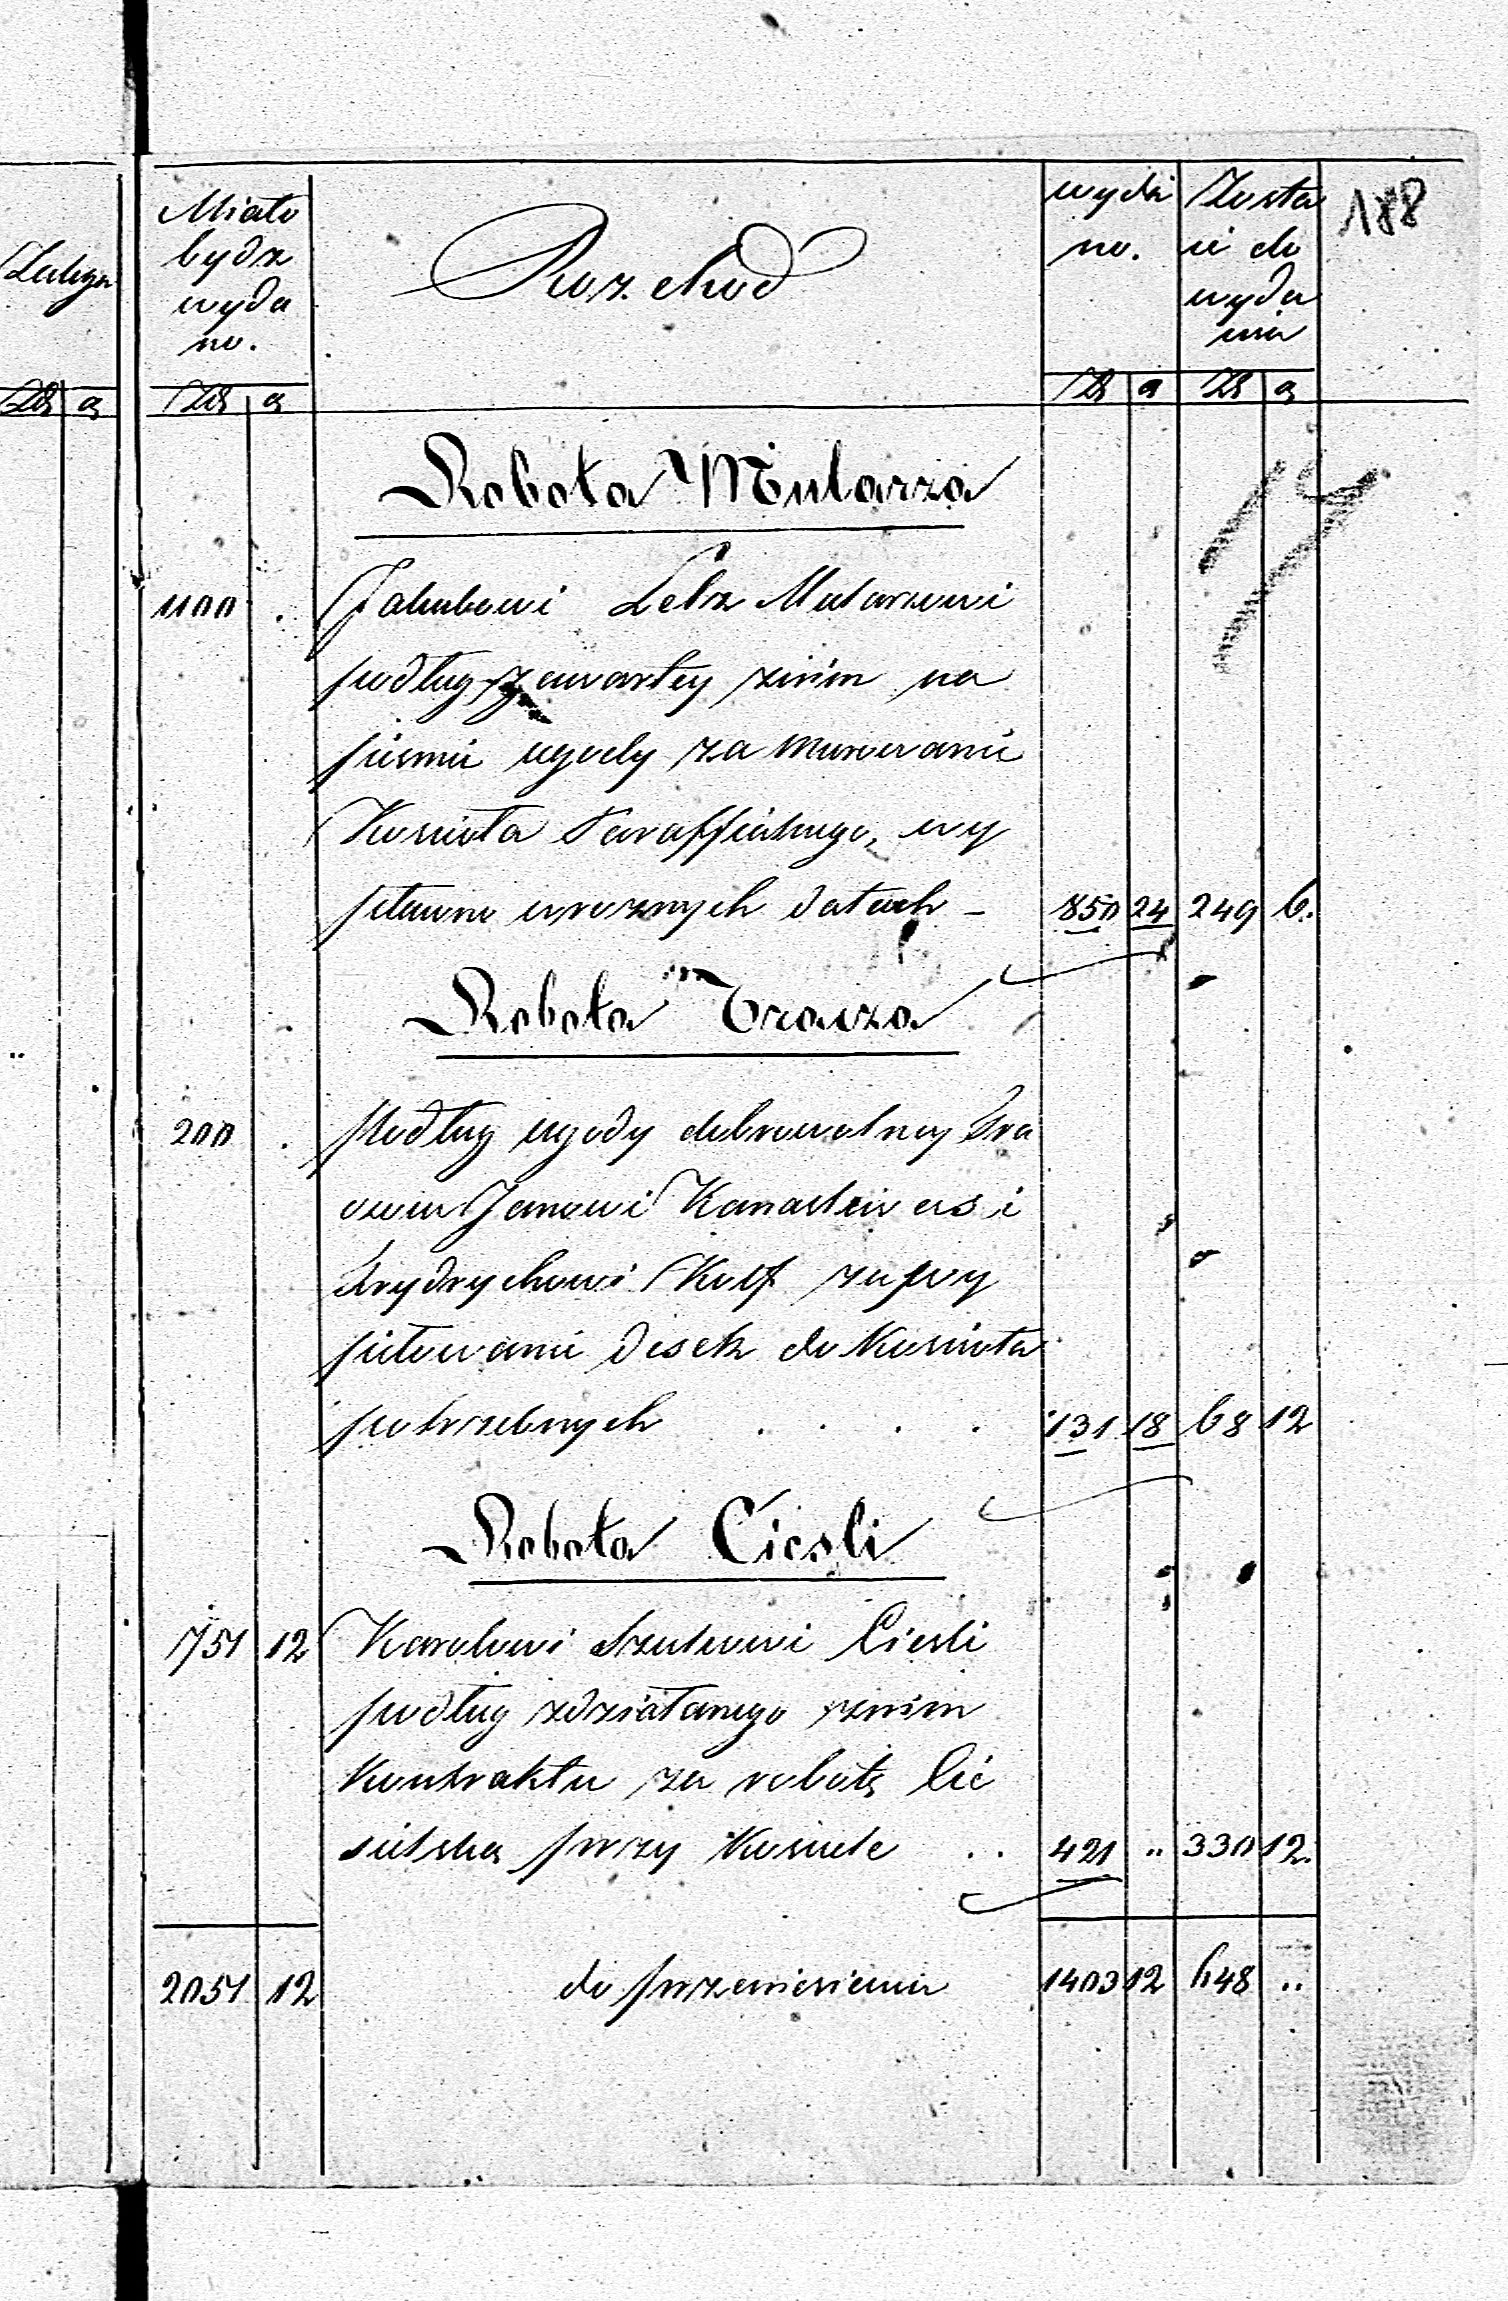 188
Miało
bydz
wyda
no.
Rozchod
wyda
no.
Zosta
ie do
wyda
nia
Zł g
Zł g
Zł g
Zł g
Robota Mularza
1100 . Jakubowi Mularzowi
podług zawartey znim na
pismie ugody za murowanie
Kościoła Paraffialnego, wy
w roznych datach - 850 24 249 6.
Robota Tracza
200 . Podług ugody dobrowolney Tra
czom Janowi i
Frydrychowi
piłowanie desek do Kościoła
potrzebnych . . . . 131 18 68 12
Robota Ciesli
751 12 Karolowi Ciesli
podług zdziałanego znim
Kontraktu za robotę Cie
sielską przy Kosciele . . 421 " 330 12.
2051 12 do przeniesienia 1403 12 648 "